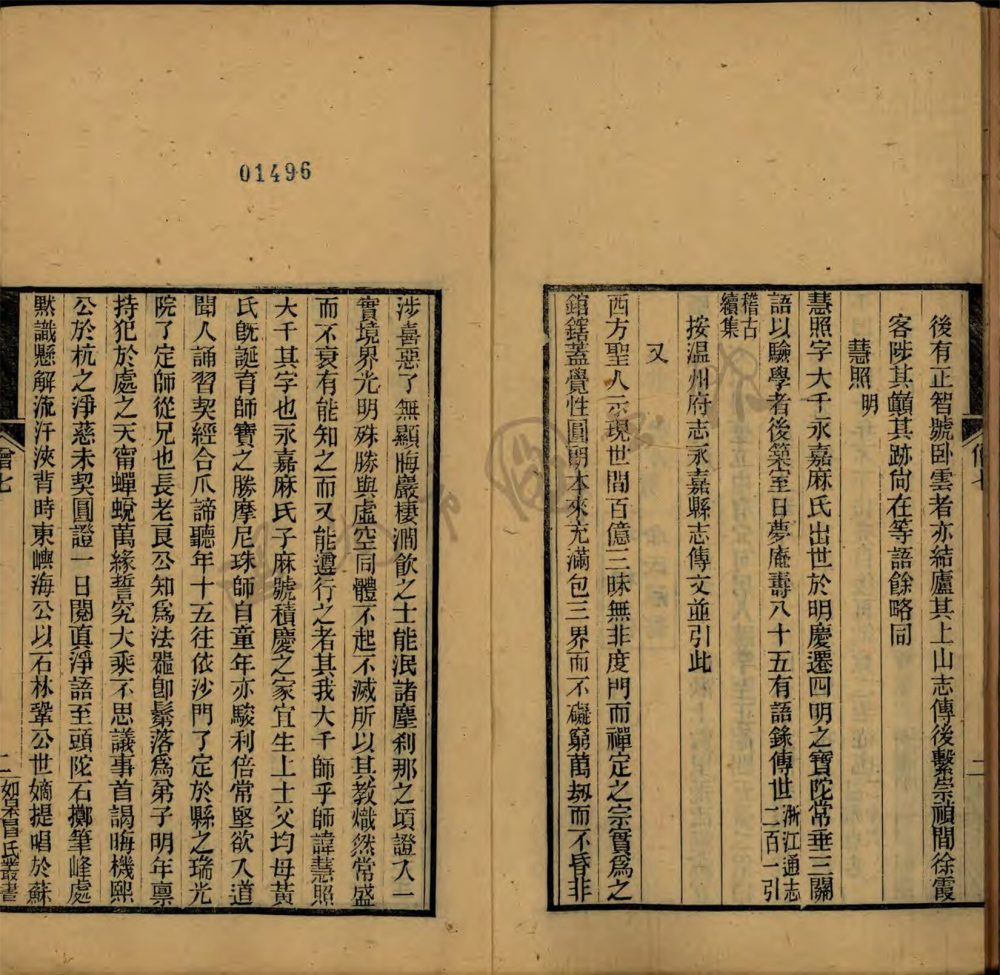 後有正智號卧雲者亦結廬其上山志傳後繫崇禎間徐霞
客陟其巔其跡尚在等語餘略同
慧照 明
慧照字大千永嘉麻氏出世於明慶遷四明之寶陀常垂三關
語以驗學者後築室日夢庵壽八十五有語錄傳世 浙江通志
二百一引
稽古
續集
按温州府志永嘉縣志傳文並引此
又
西方聖人示現世間百億三昧無非度門而禪定之宗實爲之
錧鎋蓋覺性圓明本來充滿包三界而不礙窮萬刼而不昏非
01496
涉喜惡了無顯晦巖棲澗飲之士能泯諸塵刹那之頃證入一
實境界光明殊勝與虛空同體不起不滅所以其教熾然常盛
而不衰有能知之而又能遵行之者其我大千師乎師諱慧照
大千其字也永嘉麻氏子麻號積慶之家宜生上士父均母黃
氏旣誕育師寶之勝摩尼珠師自童年亦駿利倍常堅欲入道
聞人誦習契經合爪諦聽年十五往依沙門了定於縣之瑞光
院了定師從兄也長老良公知爲法器卽鬀落爲弟子明年禀
持犯於處之天甯蟬蛻萬緣誓究大乘不思議事首謁晦機熙
公於杭之淨慈未契圓證一日閱眞淨語至頭陀石擲筆峰處
默識懸解流汗浹背時東嶼海公以石林鞏公世嫡提唱於蘇
二
如杲昌氏叢書